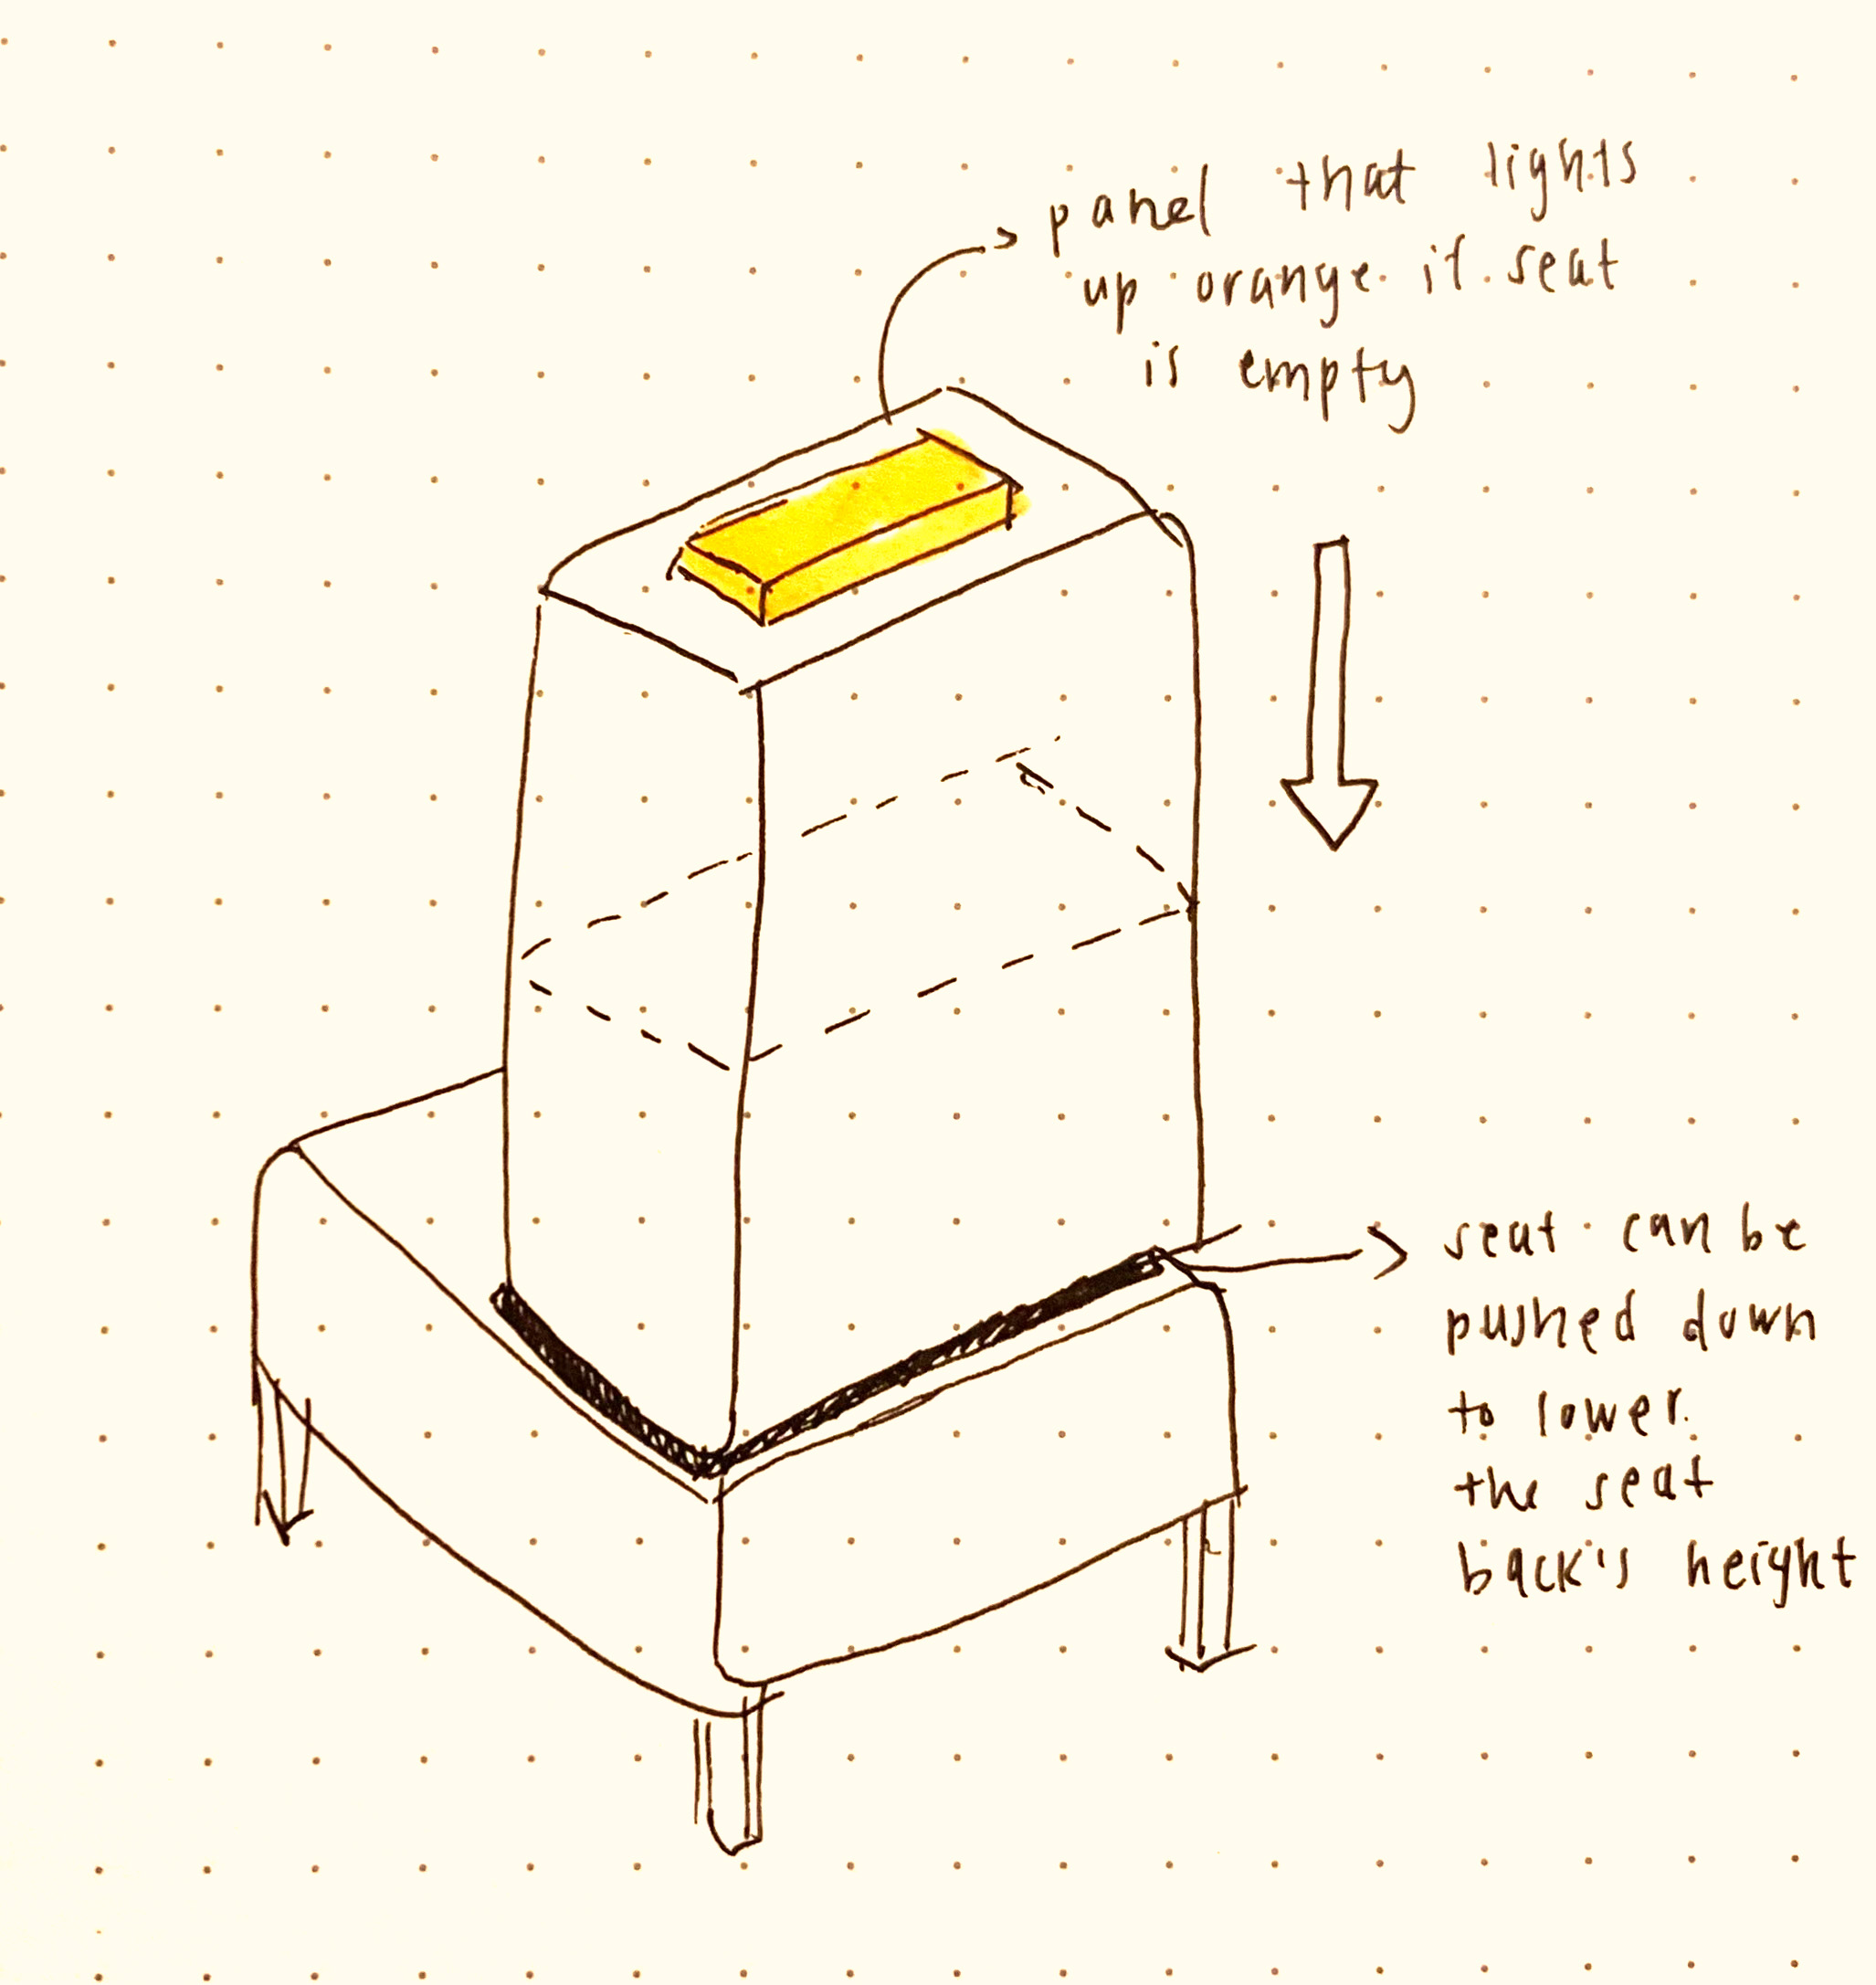 panel that lights
up orange if seat
is empty
seat can be
pushed down
to lower
the seat
back's height